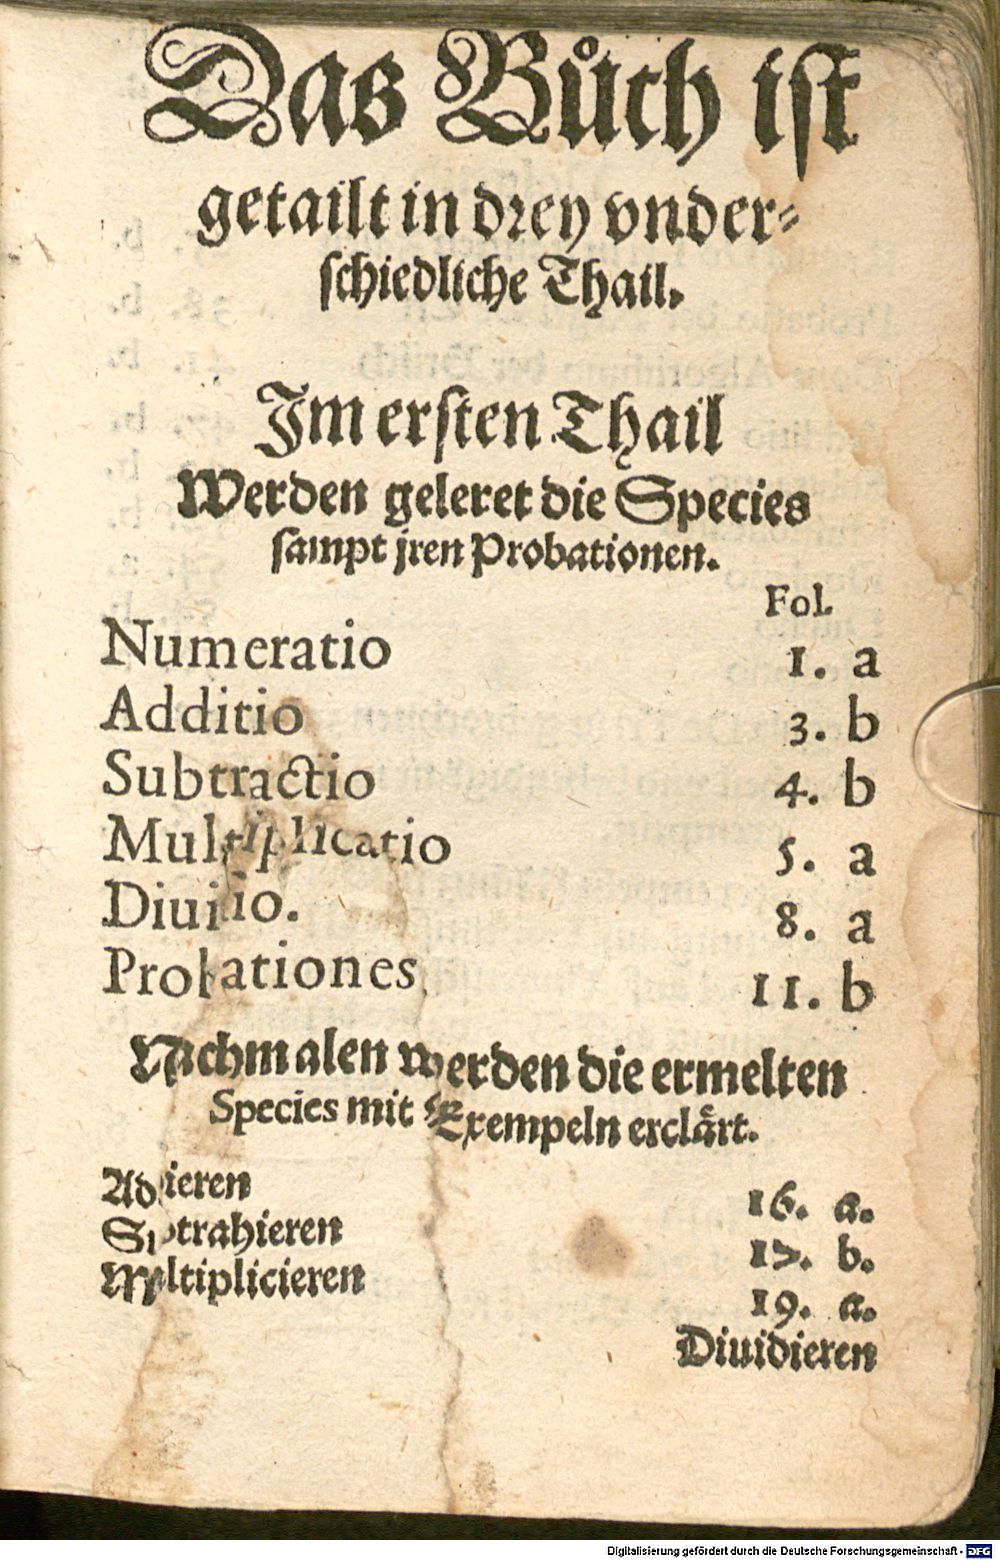 Das Bůch ist
getailt in drey vnder-
schiedliche Thail.
Im ersten Thail
Werden geleret die Species
sampt jren Probationen.
Fol.
Numeratio 1. a
Additio 3. b
Subtractio 4. b
Multiplicatio 5. a
Diuisio. 8. a
Probationes 11. b
Nachmalen werden die ermelten
Species mit Exempeln erclärt.
Addieren 16. a.
Subtrahieren 17. b.
Multiplicieren 19. a.
Diuidieren
Digitalisierung gefördert durch die Deutsche Forschungsgemeinschaft - DFG